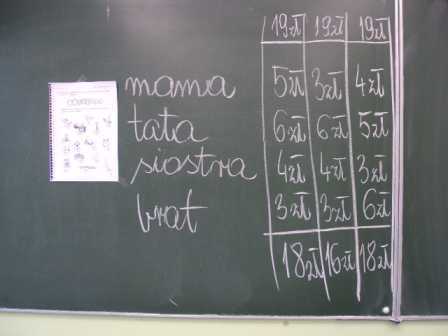 19zł 19zł 19zł
mama 5zł 3zł 4zł
tata 6zł 6zł 5zł
siostra 4zł 4zł 3zł
brat 3zł 3zł 6zł
18zł 16zł 18zł